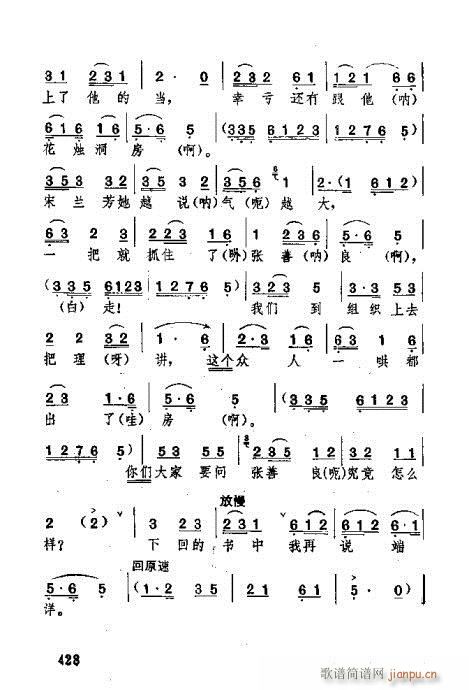 3 1 2 3 1 | 2 · 0 | 2 3 2 6 1 | 1 2 1 6 6 |
上了 他的 当, 幸亏 还有 跟他(呐)
6 1 6 1 6 | 5 · 6 5 | (3 3 5 6 1 2 3 | 1 2 7 6 5) |
花烛洞房(啊)。
3 5 3 3 2 | 3 5 3 2 | 3 5 6 1 | 2 · (1 6 1 2) |
宋兰芳她越说(呐)气(呃)越大,
6 3 2 3 | 2 3 2 1 6 | 0 1 2 3 | 5 · 6 5 |
一把就抓住了(呀)张善(呐)良(啊),
(3 3 5 6 1 2 3 | 1 2 7 6 5) | 2 3 5 | 3 · 3 5 3 |
(白)走! 我们到组织上去
2 2 3 2 | 1 · 6 | 2 · 3 1 6 | 3 2 1 6 |
把理(呀)讲,这个众人一哄都
5 3 2 · 3 1 6 | 5 · 6 5 | (3 3 5 6 1 2 3 |
出了(哇)房(啊)。
1 2 7 6 5) | 5 3 5 5 | 2 3 5 3 5 | 3 2 1 1 |
你们大家要问张善良(呃)究竟怎么
放慢
2 (2) | 3 2 3 | 2 3 1 6 1 2 | 6 1 2 6 · 1 |
样? 下回的书中我再说端
回原速
5 · 6 5 | (1 · 2 3 5 | 2 1 6 1 | 5 · 0) |
洋。
428
歌谱简谱网
jianpu.cn